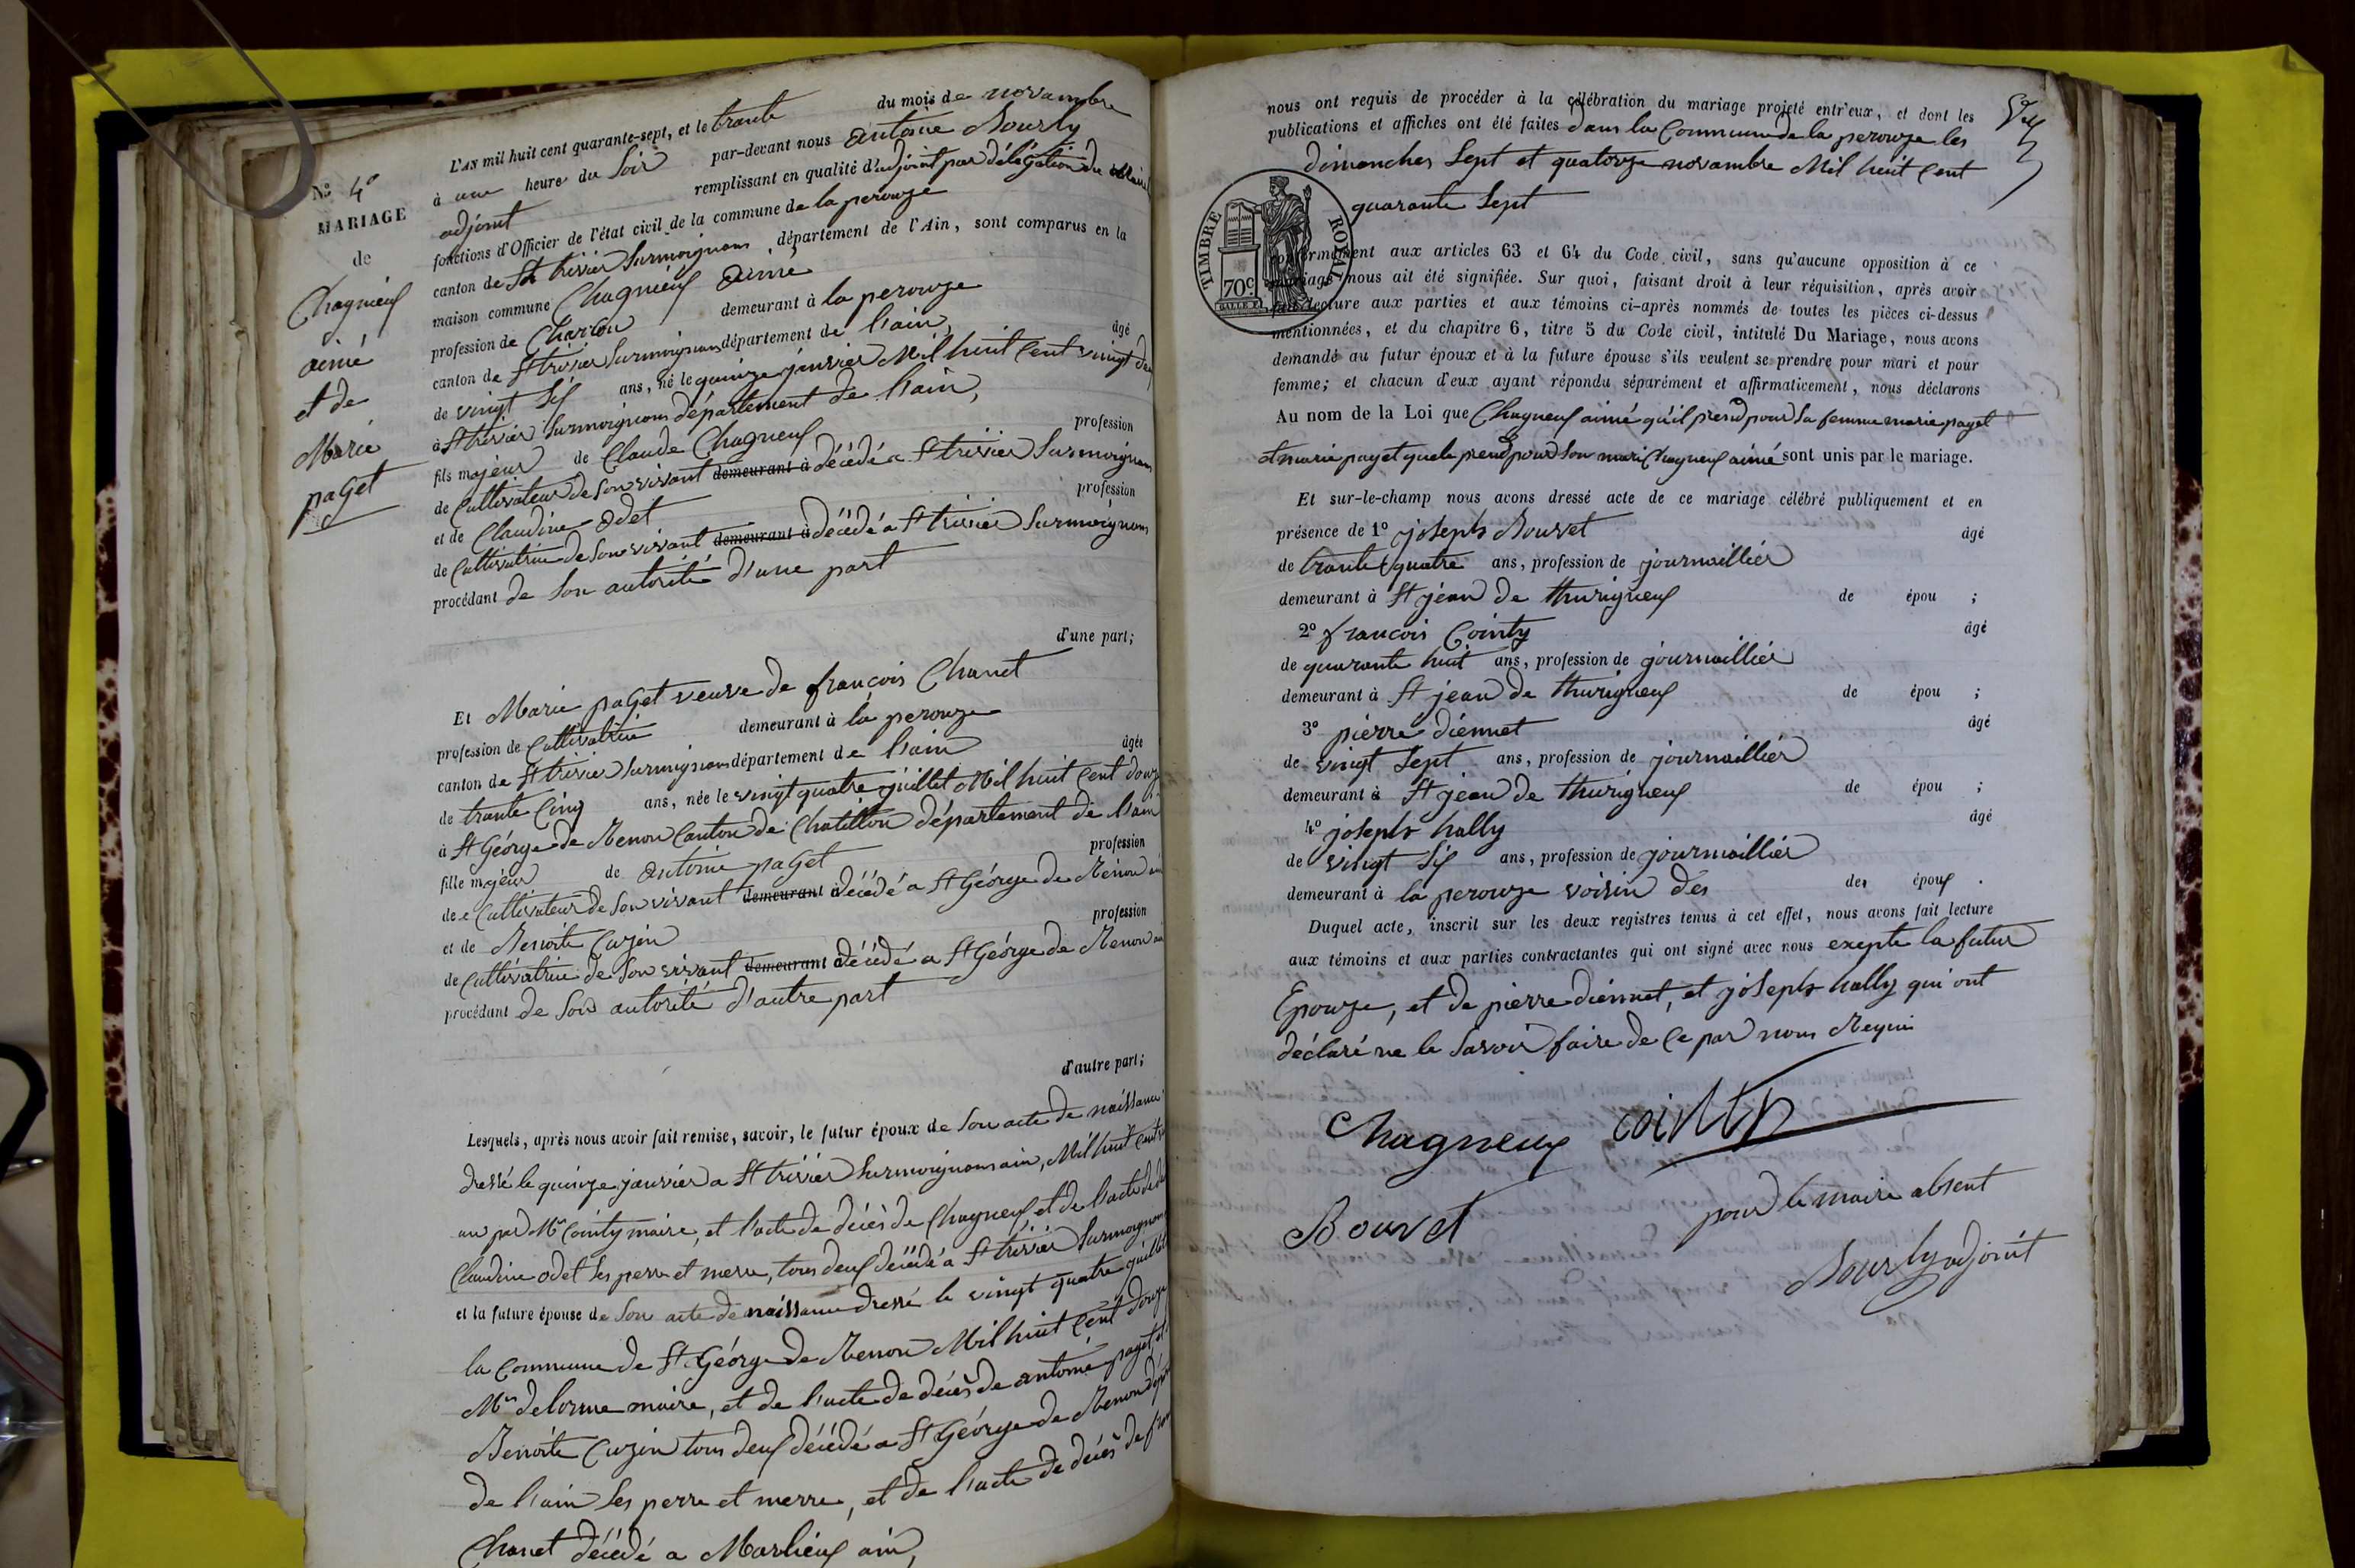 N° 4e
MARIAGE
de
Chagnieux
aimé
et de
Marie
paGet
L'an mil huit cent quarante-sept, et le trante du mois de novambre
à une heure du Soir par-devant nous antoine Bourly
adjoint remplissant en qualité d'adjoint par délégation du Maire
fonctions d'Officier de l'état civil de la commune de la perouze
canton de St trivier Surmoignans, département de l'Ain, sont comparus en la
maison commune Chagnieux aimé
profession de Charron demeurant à la perouze
canton de St trivier Surmoignans département de l'ain, âgé
de vingt Six ans, né le quinze janvier Mil huit Cent vingt
à St trivier Surmoignans département de l'ain,
fils majeur de Claude Chagneux profession
de Cultivateur de Son vivant demeurant à décédé a St trivier Surmoignans
et de Claudine odet profession
de Cultivatrice de Son vivant demeurant à décédé a St trivier Surmoignans
procédant de Son autorité d'une part
d'une part;
Et Marie paGet veuve de françois Chanet
profession de Cultivatrice demeurant à la perouze
canton de St trivier Surmoignans département de l'ain âgée
de trante Cinq ans, née le vingt quatre juillet Mil huit Cent douze
à St Géorge de Renon Canton de Chatillon département de l'ain
fille majeur de antoine paGet profession
de Cultivateur de Son vivant demeurant à décédé a St Géorge de Renon ain
et de Benoite Cuzin profession
de Cultivatrice de Son vivant demeurant à décédé a St Géorge de Renon ain
procédant de Son autorité d'autre part
d'autre part;
Lesquels, après nous avoir fait remise, savoir, le futur époux de Son acte de naissance
dressé le quinze janvier a St trivier Surmoignans ain, Mil huit Cent
un par Mr Cointy maire, et l'acte de décès de Chagneux et de l'acte de
Claudine odet Ses perre et merre, tous deux décédé a St trivier Surmoignans
et la future épouse de Son acte de naissance dressé le vingt quatre juillet
la Commune de St Géorge de Renon Mil huit Cent douze
Mr delorme maire, et de l'acte de décès de antoine paget et
Benoite Cuzin tous deux décédé a St Géorge de Renon
de l'ain Ses perre et merre, et de l'acte de décès de
Chanet décédé a Marlieux ain,
nous ont requis de procéder à la célébration du mariage projeté entr'eux, et dont les
publications et affiches ont été faites dans la Commune de la perouze les
dimanches Sept et quatorze novambre Mil huit Cent
quarante Sept
TIMBRE ROYAL
70c.
conformément aux articles 63 et 64 du Code civil, sans qu'aucune opposition à ce
mariage nous ait été signifiée. Sur quoi, faisant droit à leur réquisition, après avoir
fait lecture aux parties et aux témoins ci-après nommés de toutes les pièces ci-dessus
mentionnées, et du chapitre 6, titre 5 du Code civil, intitulé Du Mariage, nous avons
demandé au futur époux et à la future épouse s'ils veulent se prendre pour mari et pour
femme; et chacun d'eux ayant répondu séparément et affirmativement, nous déclarons
Au nom de la Loi que Chagneux aimé qu'il prend pour Sa femme marie paget
et marie paget quele prend pour Son mari Chagneux aimé sont unis par le mariage.
Et sur-le-champ nous avons dressé acte de ce mariage célébré publiquement et en
présence de 1° joseph Bouvet âgé
de trante quatre ans, profession de journaillier
demeurant à St jean de thurigneux de épou ;
2° francois Cointy âgé
de quarante huit ans, profession de journaillier
demeurant à St jean de thurigneux de épou ;
3° pierre diennet âgé
de vingt Sept ans, profession de journaillier
demeurant à St jean de thurigneux de épou ;
4° joseph hally âgé
de vingt Six ans, profession de journaillier
demeurant à la perouze voisin des des époux .
Duquel acte, inscrit sur les deux registres tenus à cet effet, nous avons fait lecture
aux témoins et aux parties contractantes qui ont signé avec nous exepte la futur
Epouze, et de pierre diennet, et joseph hally qui ont
déclaré ne le Savoir faire de Ce par nous Requis
Chagneux cointy
Bouvet
pour le maire absent
Bourly adjoint